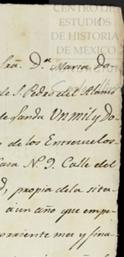 CENTRO DE
ESTUDIOS
DE HISTORIA
DE MEXICO
Sra. Dª Maria D
de S. Pedro del Alamo
de Landa Un mil y do
o de los Enrevelos
Casa N. 9. Calle del
propia de la
á un año que empe
corriente mes y fina